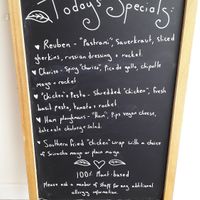 Today's Specials:
♥ Reuben - "Pastrami", Sauerkraut, sliced
gherkins, russian dressing + rocket.
♥ Chorizo - Spicy "Chorizo", Pico de gallo, chipotle
mayo + rocket.
♥ "Chicken" + Pesto - Shredded "chicken", fresh
basil pesto, tomato + rocket
♥ Ham ploughmans - "Ham", vegan cheese,
salad.
♥ Southern fried "chicken" wrap with a choice
of Sriracha mayo or plain mayo.
100% Plant-based
Please ask a member of staff for any additional
allergy information.